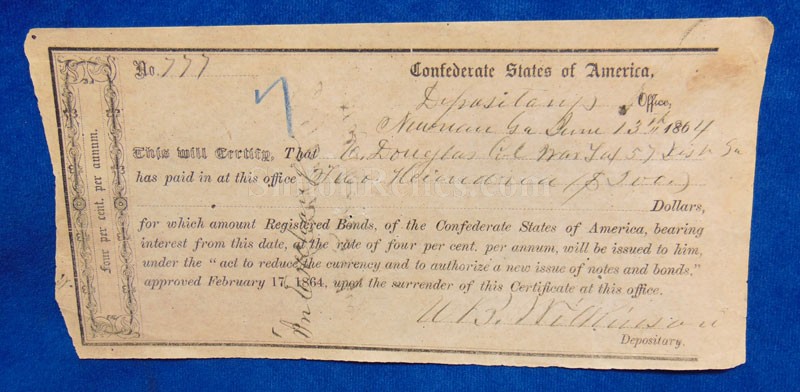 No. 777
Confederate States of America,
Depositary's Office,
Newnan Ga June 13th 1864
This will Certify, That W. Douglas Col War Tax 57 Dist Ga
has paid in at this office Two Hundred ($200)
Dollars,
for which amount Registered Bonds, of the Confederate States of America, bearing
interest from this date, at the rate of four per cent. per annum, will be issued to him,
under the "act to reduce the currency and to authorize a new issue of notes and bonds,"
approved February 17, 1864, upon the surrender of this Certificate at this office.
W. B. Wilkinson
Depositary.
Four per cent. per annum.